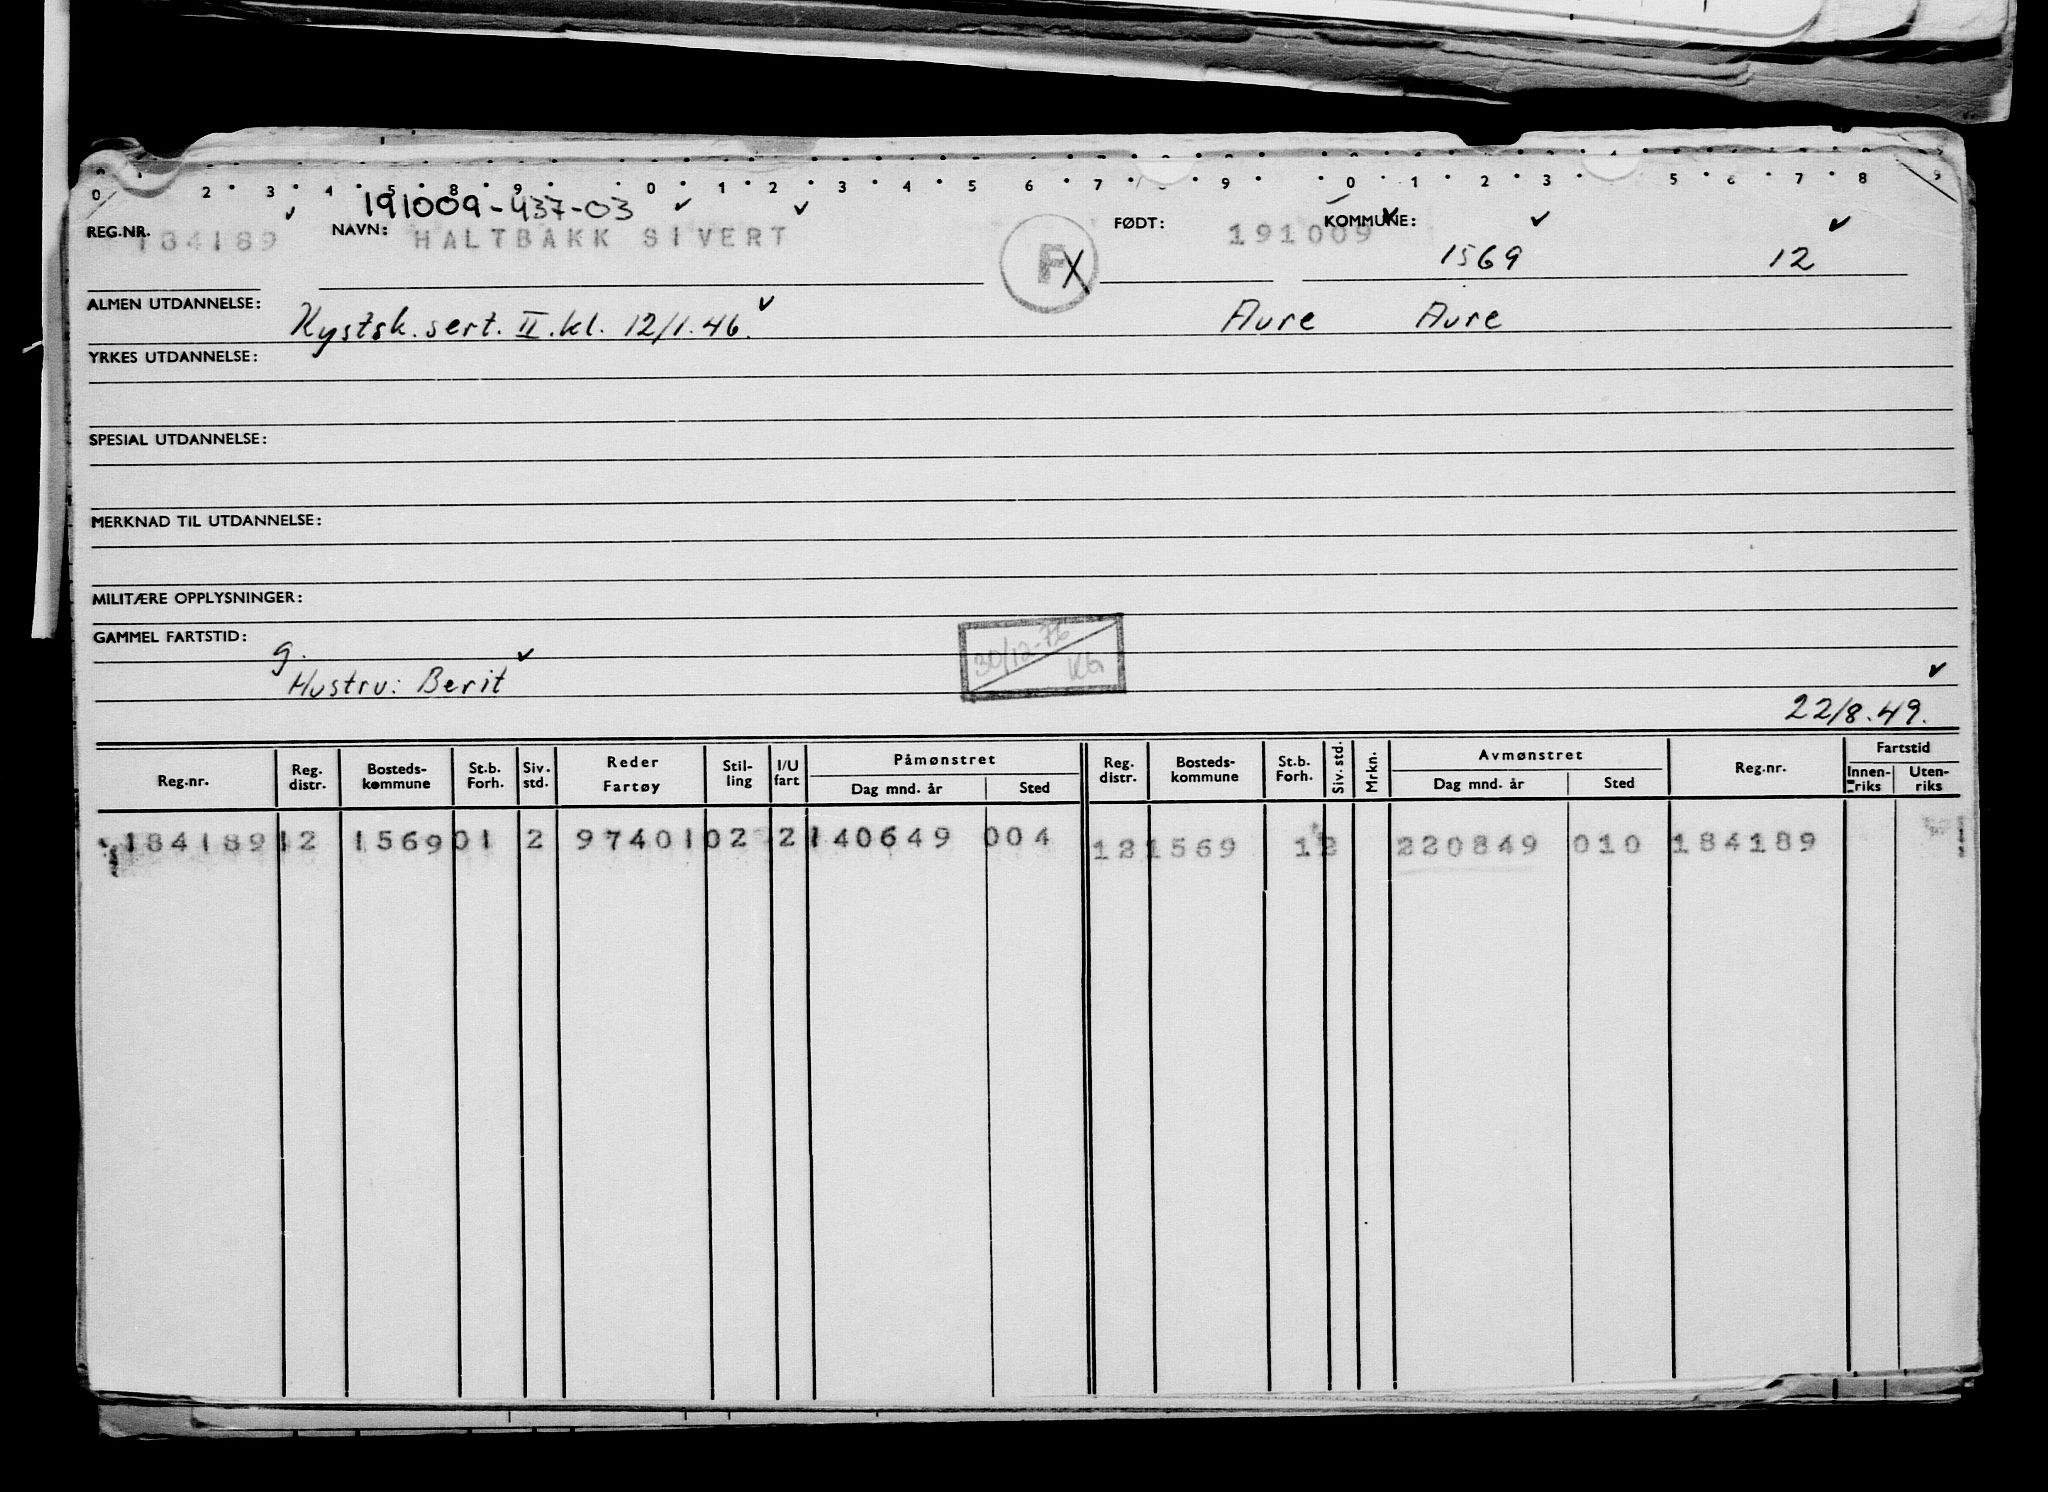 0 2 3 4 5 8 9 4 0 1 2 3 4 5 6 7 9 0 1 2 3 5 6 7 8 9
191009-437-03
REG.NR. 184189 NAVN: HALTBAKK SIVERT F X FØDT: 191009 KOMMUNE: 1569 12
ALMEN UTDANNELSE: Kystsk. sert. II. kl. 12/1.46. Aure Aure
YRKES UTDANNELSE:
SPESIAL UTDANNELSE:
MERKNAD TIL UTDANNELSE:
MILITÆRE OPPLYSNINGER:
GAMMEL FARTSTID: g.
30/12-76
Hustru: Berit
22/8.49.
Reg.nr. Reg. distr. Bosteds-kommune St.b. Forh. Siv. std. Reder Fartøy Stil-ling I/U fart Påmønstret Dag mnd. år Sted Reg. distr. Bosteds-kommune St.b. Forh. Siv. std. Mrkn. Avmønstret Dag mnd. år Sted Reg.nr. Fartstid Innen-riks Uten-riks
184189 12 1569 01 2 97401 02 2 140649 004 12 1569 1 2 220849 010 184189